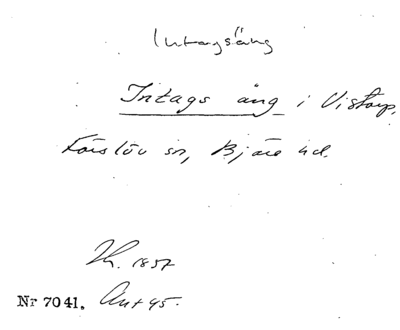 Intagsäng
Intags äng i Vistorp,
Förslöv sn, Bjäre hd.
Th. 1857
Nr 7041. Ant 45.